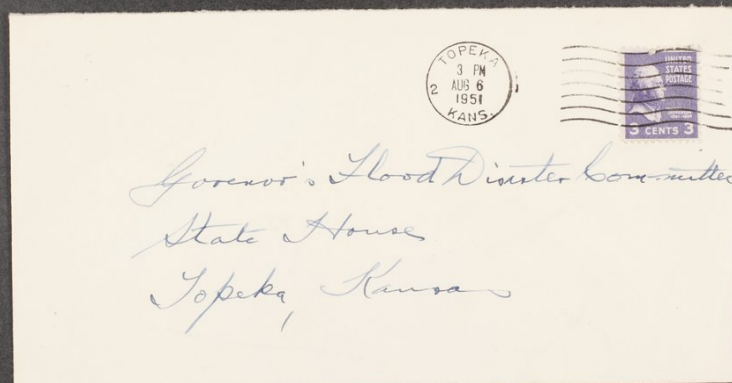 TOPEKA
3 PM
AUG 6
1951
2
KANS.
UNITED
STATES
POSTAGE
3 CENTS 3
Govenor's Flood Disaster Committee
State House
Topeka, Kansas